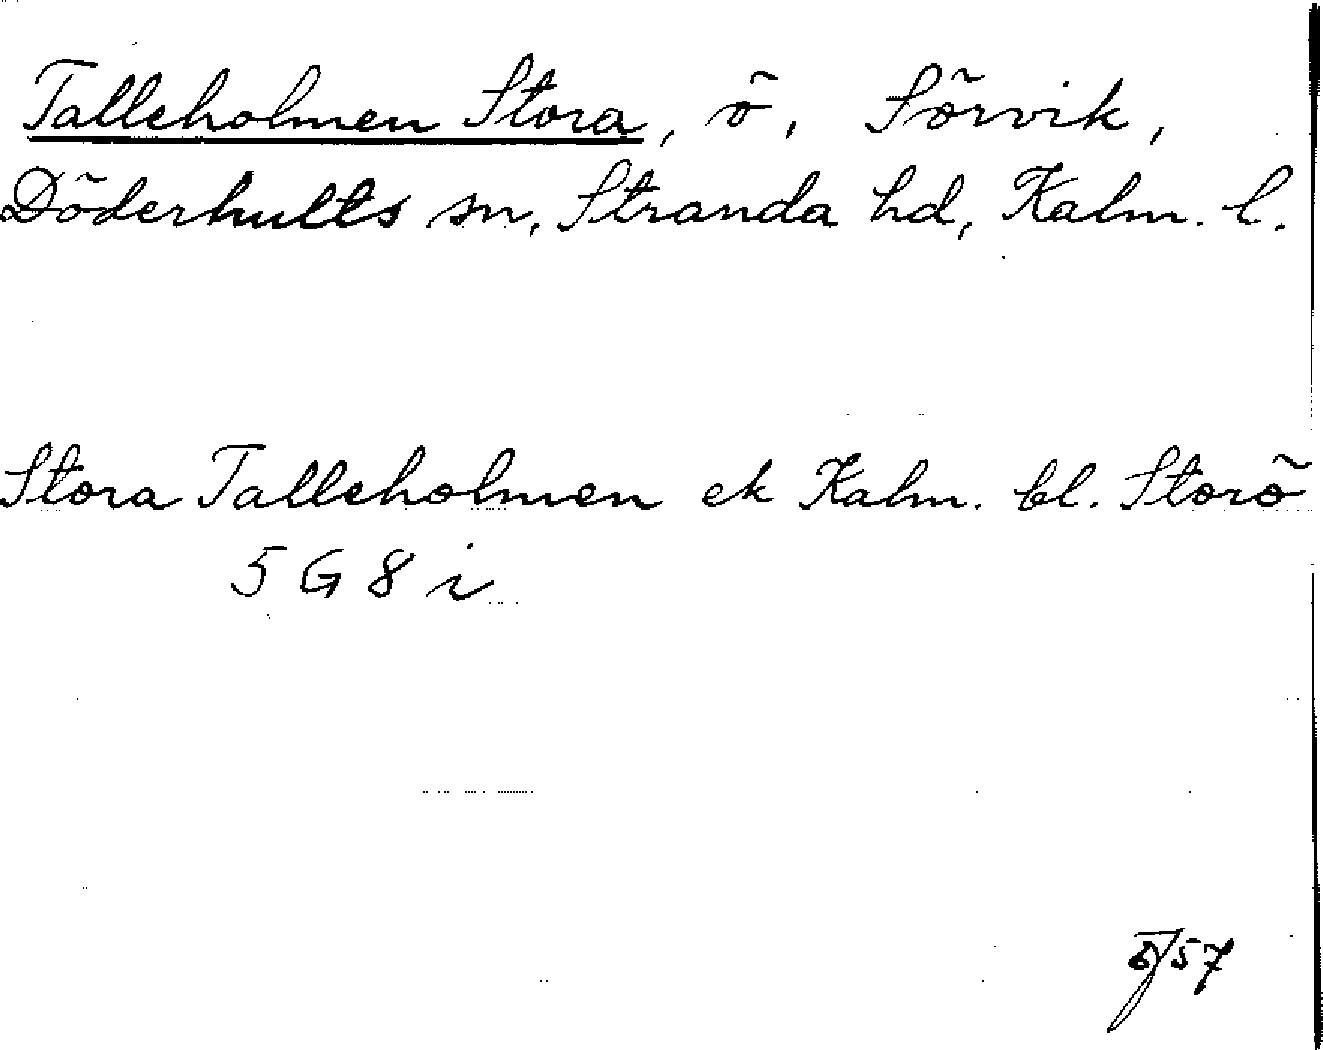 Talleholmen Stora, ö, Sörvik,
Döderhults sn, Stranda hd, Kalm. l.
Stora Talleholmen ek Kalm. bl. Storö
5 G 8 i
57